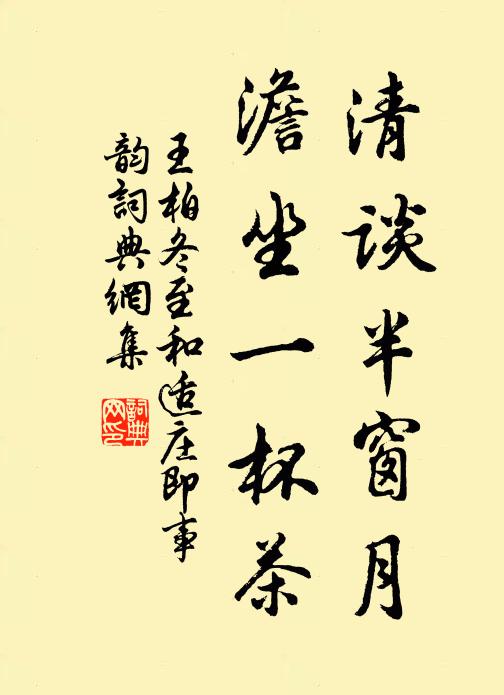 清談半窗月
澹坐一杯茶
王柏冬至和適庄即事
韵詞典網集
詞典
网印